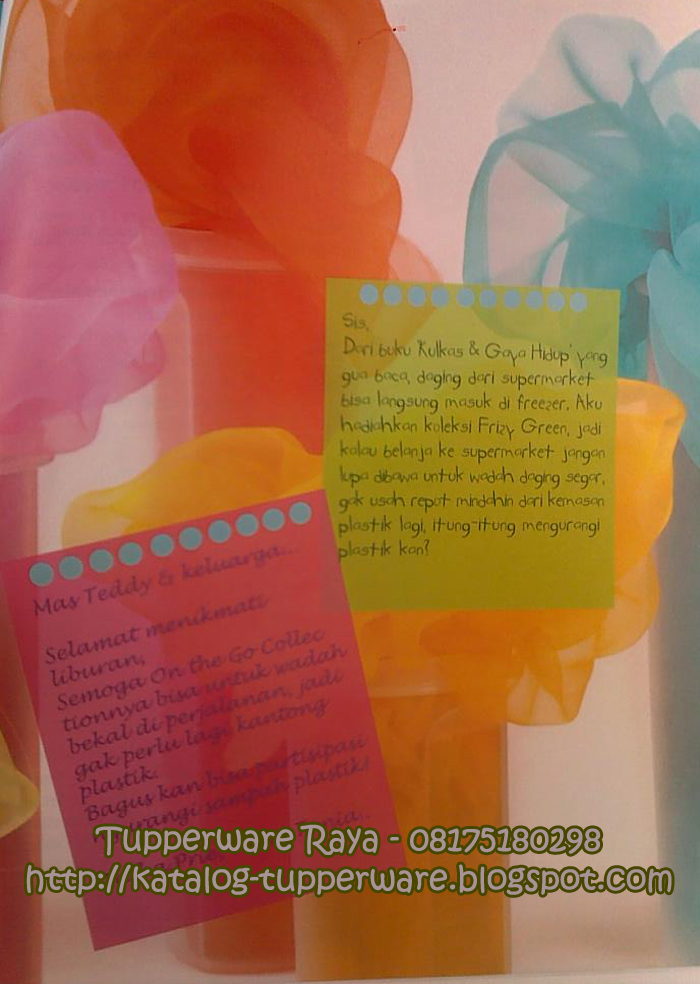 Sis,
Dari buku 'Kulkas & Gaya Hidup' yang
gua baca, daging dari supermarket
bisa langsung masuk di freezer. Aku
hadiahkan koleksi Frizy Green, jadi
kalau belanja ke supermarket jangan
lupa dibawa untuk wadah daging segar,
gak usah repot mindahin dari kemasan
plastik lagi, itung-itung mengurangi
plastik kan?
Mas Teddy & keluarga...
Selamat menikmati
liburan,
Semoga On the Go Collec
tionnya bisa untuk wadah
bekal di perjalanan, jadi
gak perlu lagi kantong
plastik.
Bagus kan bisa partisipasi
sampah plastik!
Tupperware Raya - 08175180298
http://katalog-tupperware.blogspot.com